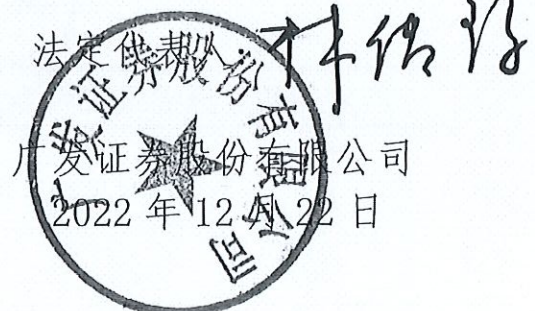 法定代表人 林传辉
广发证券股份有限公司
2022 年 12 月 22 日
广发证券股份有限公司